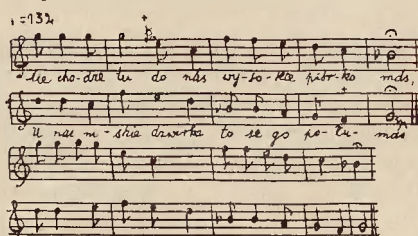 ♩=132
Nie cho-dze tu do nás wy-so-kie piór-ko más,
U nas ni-skie dzwirka to se go po-tu-más